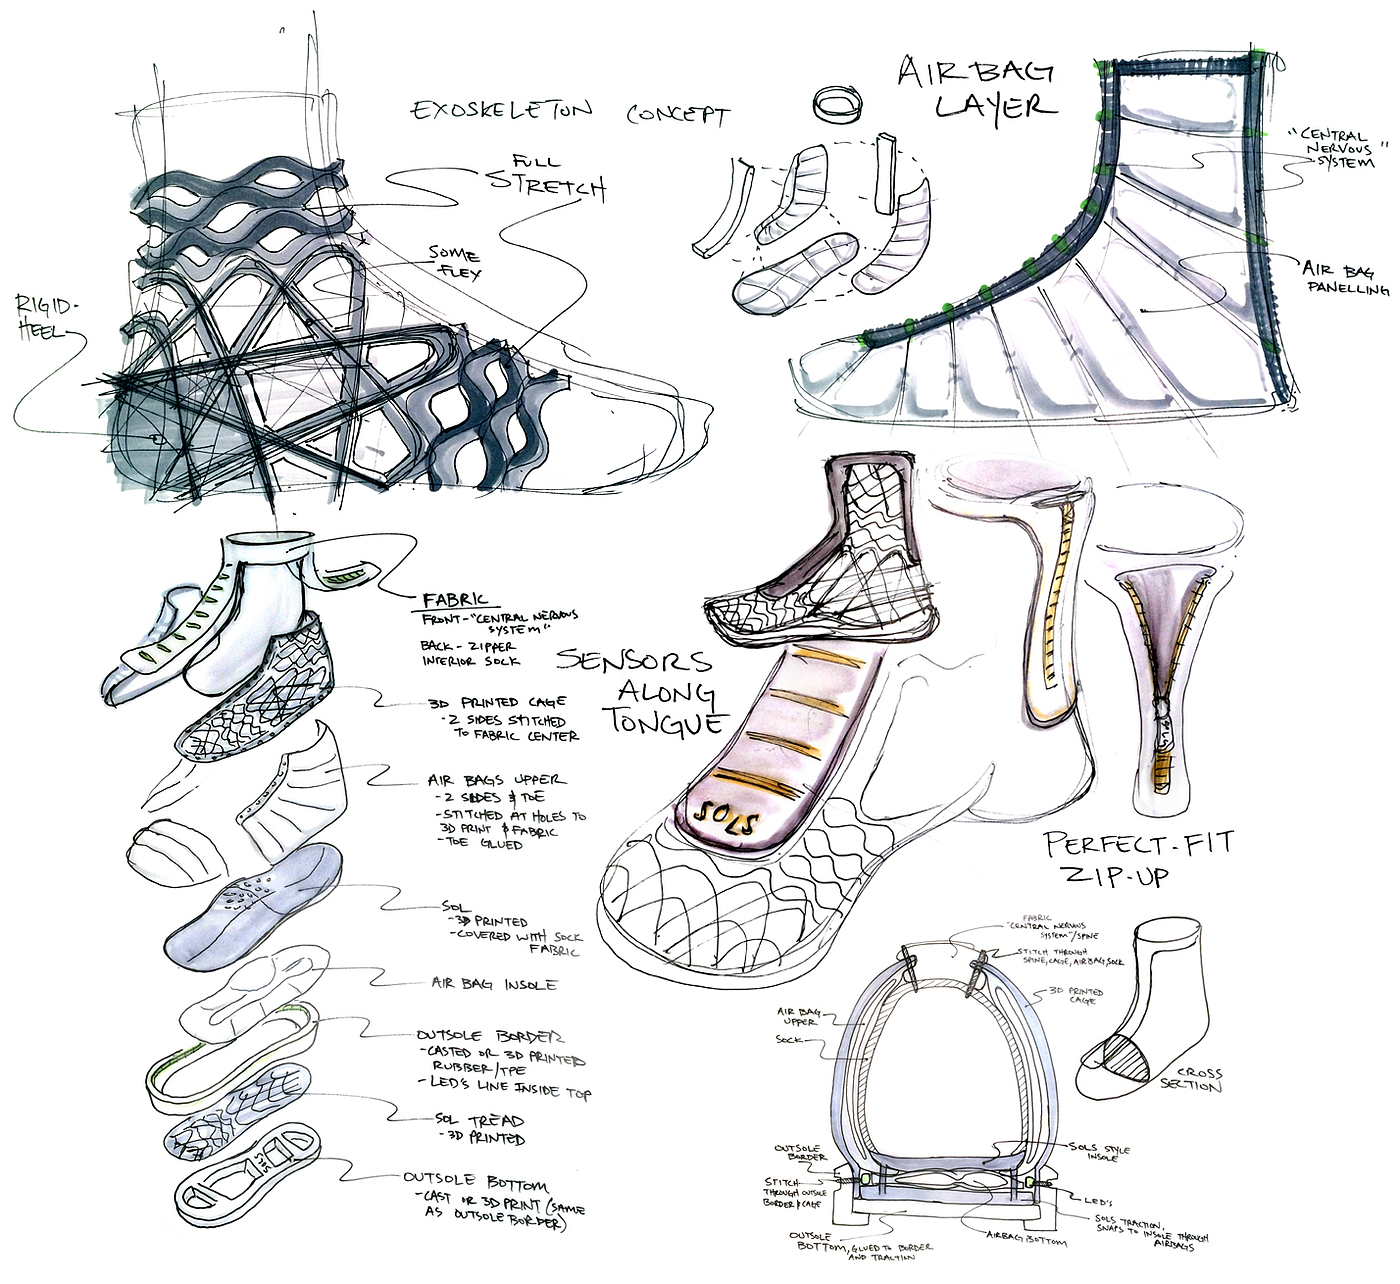 EXOSKELETON CONCEPT
FULL
STRETCH
SOME
FLEX
RIGID-
HEEL
AIRBAG
LAYER
"CENTRAL
NERVOUS"
SYSTEM
AIR BAG
PANELLING
FABRIC
FRONT-"CENTRAL NERVOUS
SYSTEM"
BACK-ZIPPER
INTERIOR SOCK
3D PRINTED CAGE
-2 SIDES STITCHED
TO FABRIC CENTER
AIR BAGS UPPER
-2 SIDES & TOE
-STITCHED AT HOLES TO
3D PRINT & FABRIC
-TOE GLUED
SOL
-3D PRINTED
-COVERED WITH SOCK
FABRIC
AIR BAG INSOLE
OUTSOLE BORDER
-CASTED OR 3D PRINTED
RUBBER/TPE
-LED'S LINE INSIDE TOP
SOL TREAD
-3D PRINTED
SOLS
OUTSOLE BOTTOM
-CAST OR 3D PRINT (SAME
AS OUTSOLE BORDER)
SENSORS
ALONG
TONGUE
SOLS
SOLS
PERFECT-FIT
ZIP-UP
FABRIC
"CENTRAL NERVOUS
SYSTEM"/SPINE
STITCH THROUGH
SPINE, CAGE, AIRBAG, SOCK
3D PRINTED
CAGE
AIR BAG
UPPER
SOCK
CROSS
SECTION
OUTSOLE
BORDER
STITCH
THROUGH OUTSOLE
BORDER & CAGE
SOLS STYLE
INSOLE
LED'S
SOLS TRACTION,
SNAPS TO INSOLE THROUGH
AIRBAGS
AIRBAG BOTTOM
OUTSOLE
BOTTOM, GLUED TO BORDER
AND TRACTION